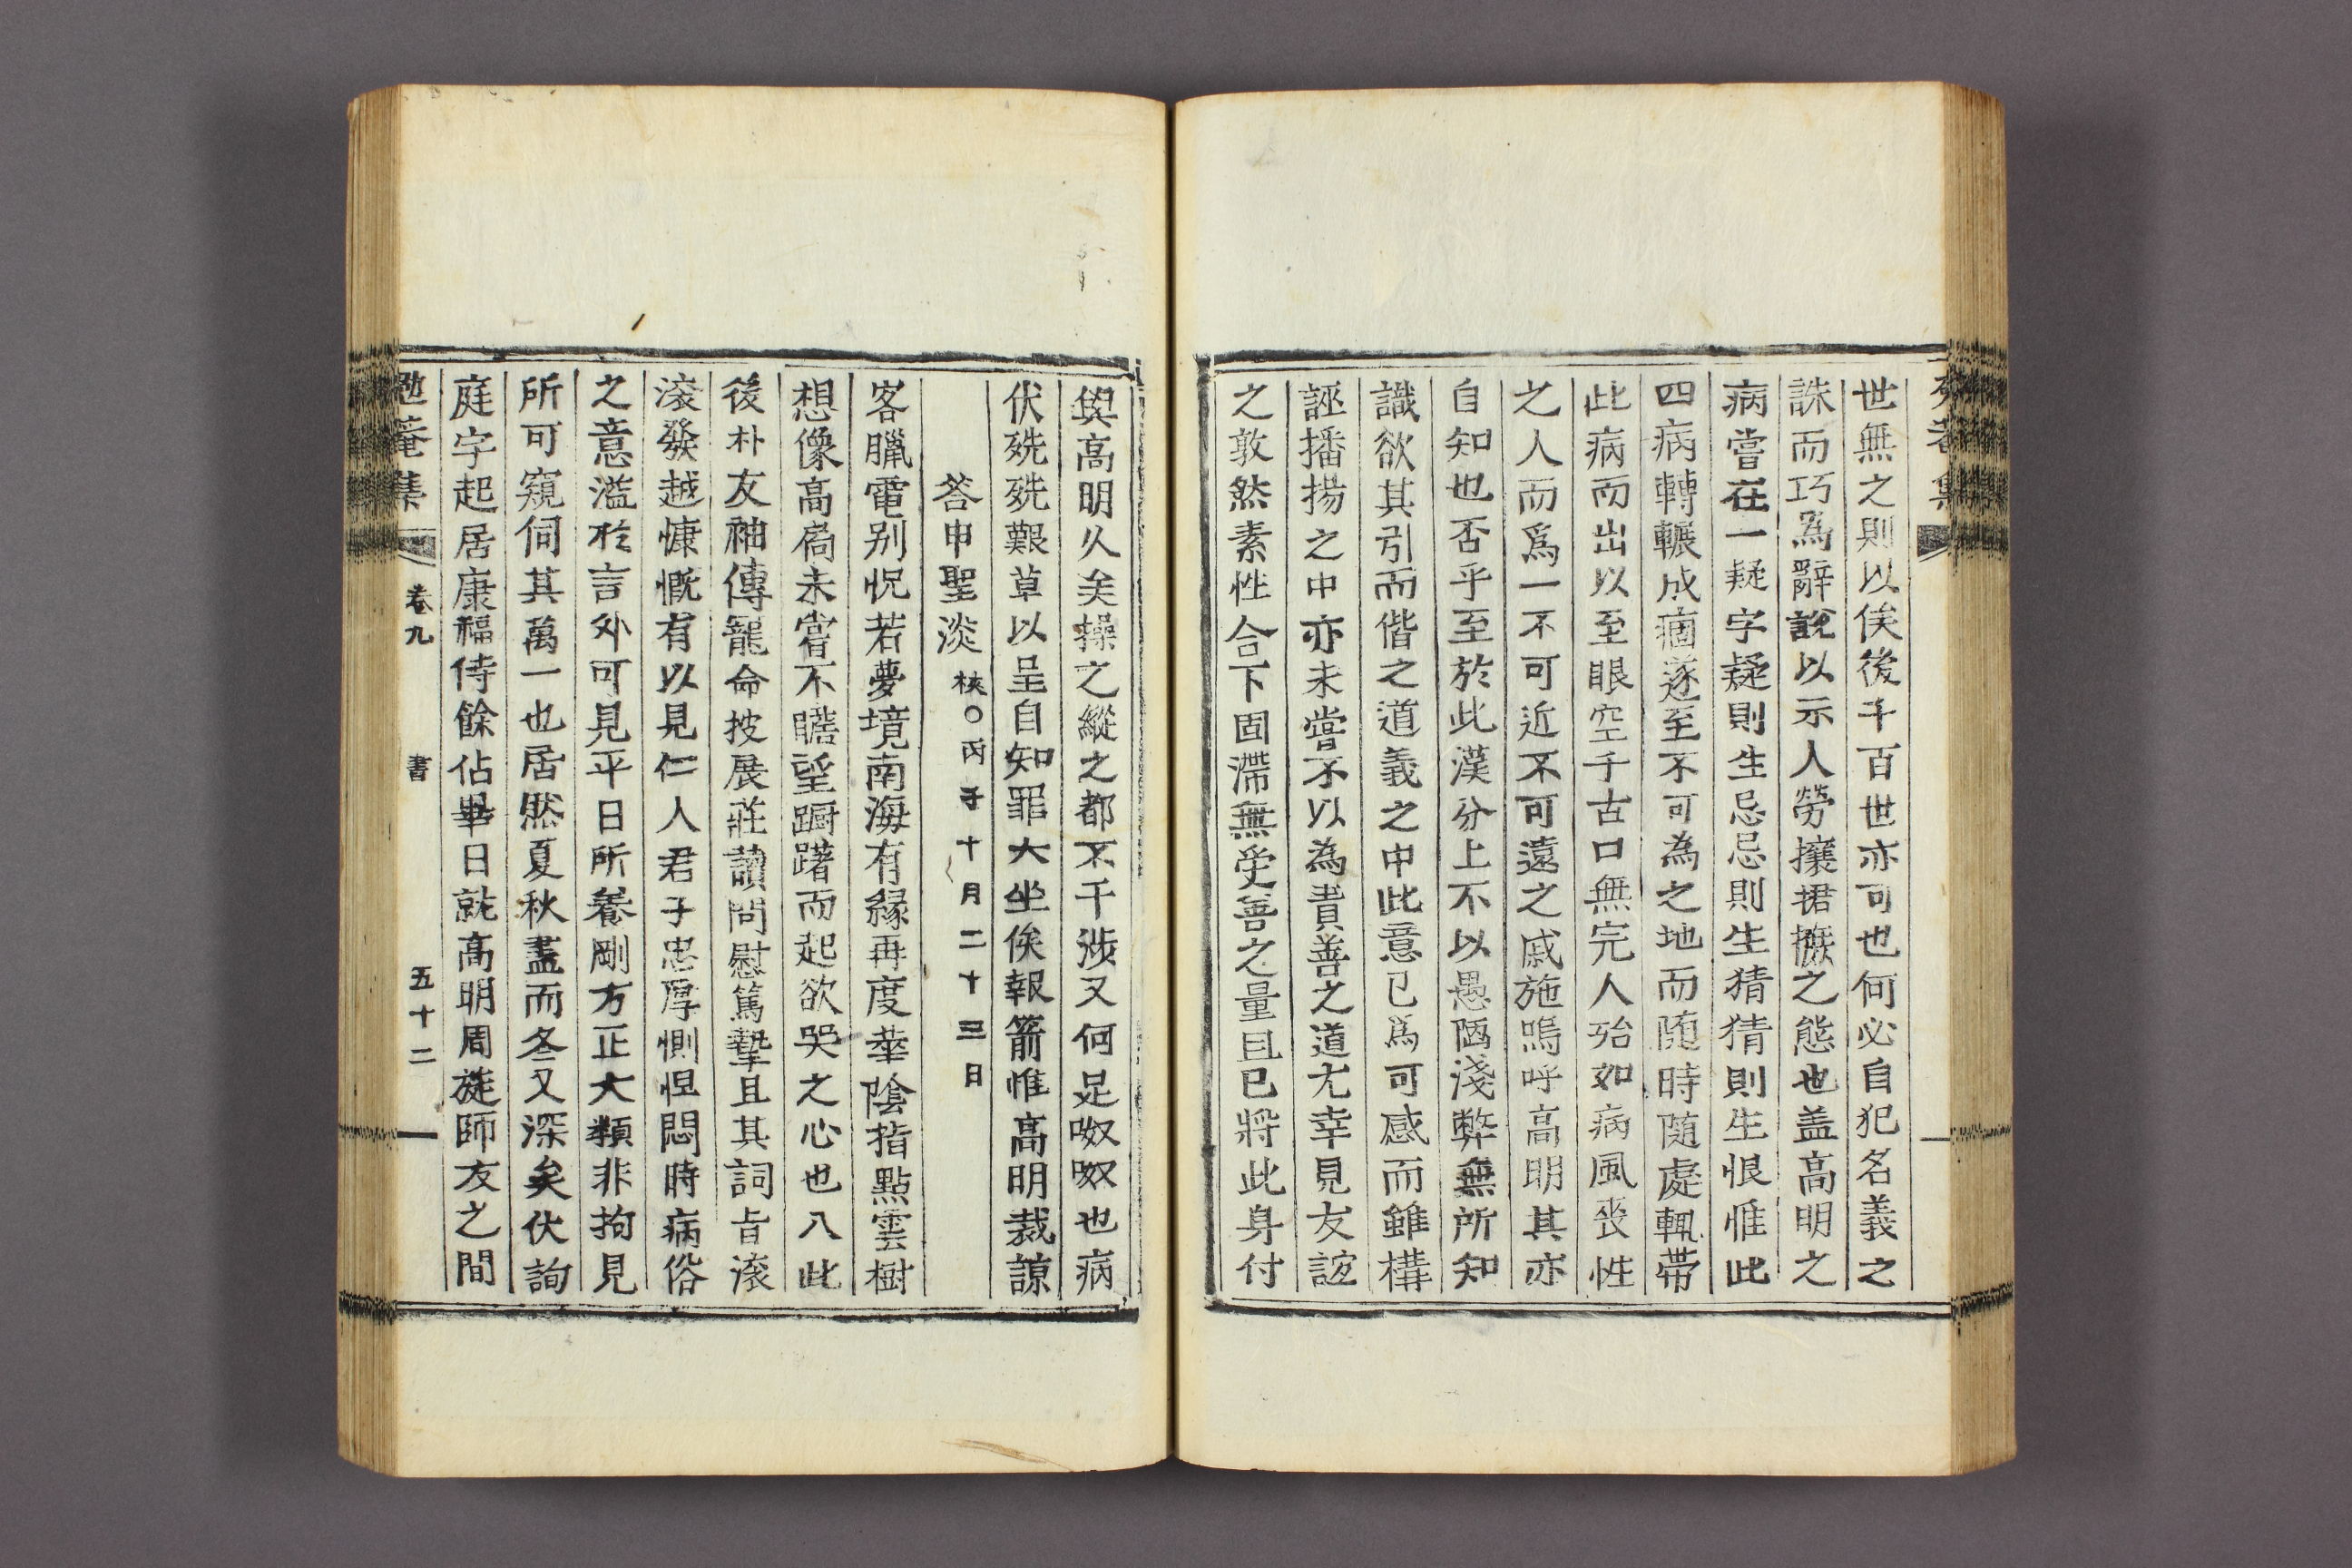 世無之則以俟後千百世亦可也何必自犯名義之
誅而巧爲辭說以示人勞攘捃撫之態也盖高明之
病嘗在一疑字疑則生忌忌則生猜猜則生恨惟此
四病轉輾成痼遂至不可為之地而随時随處輒帶
此病而出以至眼空千古口無完人殆如病風喪性
之人而爲一不可近不可遠之戚施嗚呼高明其亦
自知也否乎至於此漢分上不以愚陋淺弊無所知
識欲其引而偕之道義之中此意已爲可感而雖構
誣播揚之中亦未嘗不以為責善之道尤幸見友誼
之敦然素性合下固滯無受善之量且已將此身付
與高明久矣操之縱之都不干涉又何足呶呶也病
伏兟兟艱草以呈自知罪大坐俟報箭惟高明裁諒
答申聖淡 棪○丙子十月二十三日
客臘電别怳若夢境南海有緣再度華陰指點雲樹
想像高扃未嘗不瞻望躕躇而起欲哭之心也八此
後朴友袖傳寵命披展莊讀問慰篤摯且其詞旨滚
滚發越慷慨有以見仁人君子忠厚惻怛悶時病俗
之意溢於言外可見平日所養剛方正大類非拘見
所可窺伺其萬一也居然夏秋盡而冬又深矣伏詢
庭字起居康福侍餘佔畢日就高明周旋師友之間
勉菴集 卷九 書 五十二